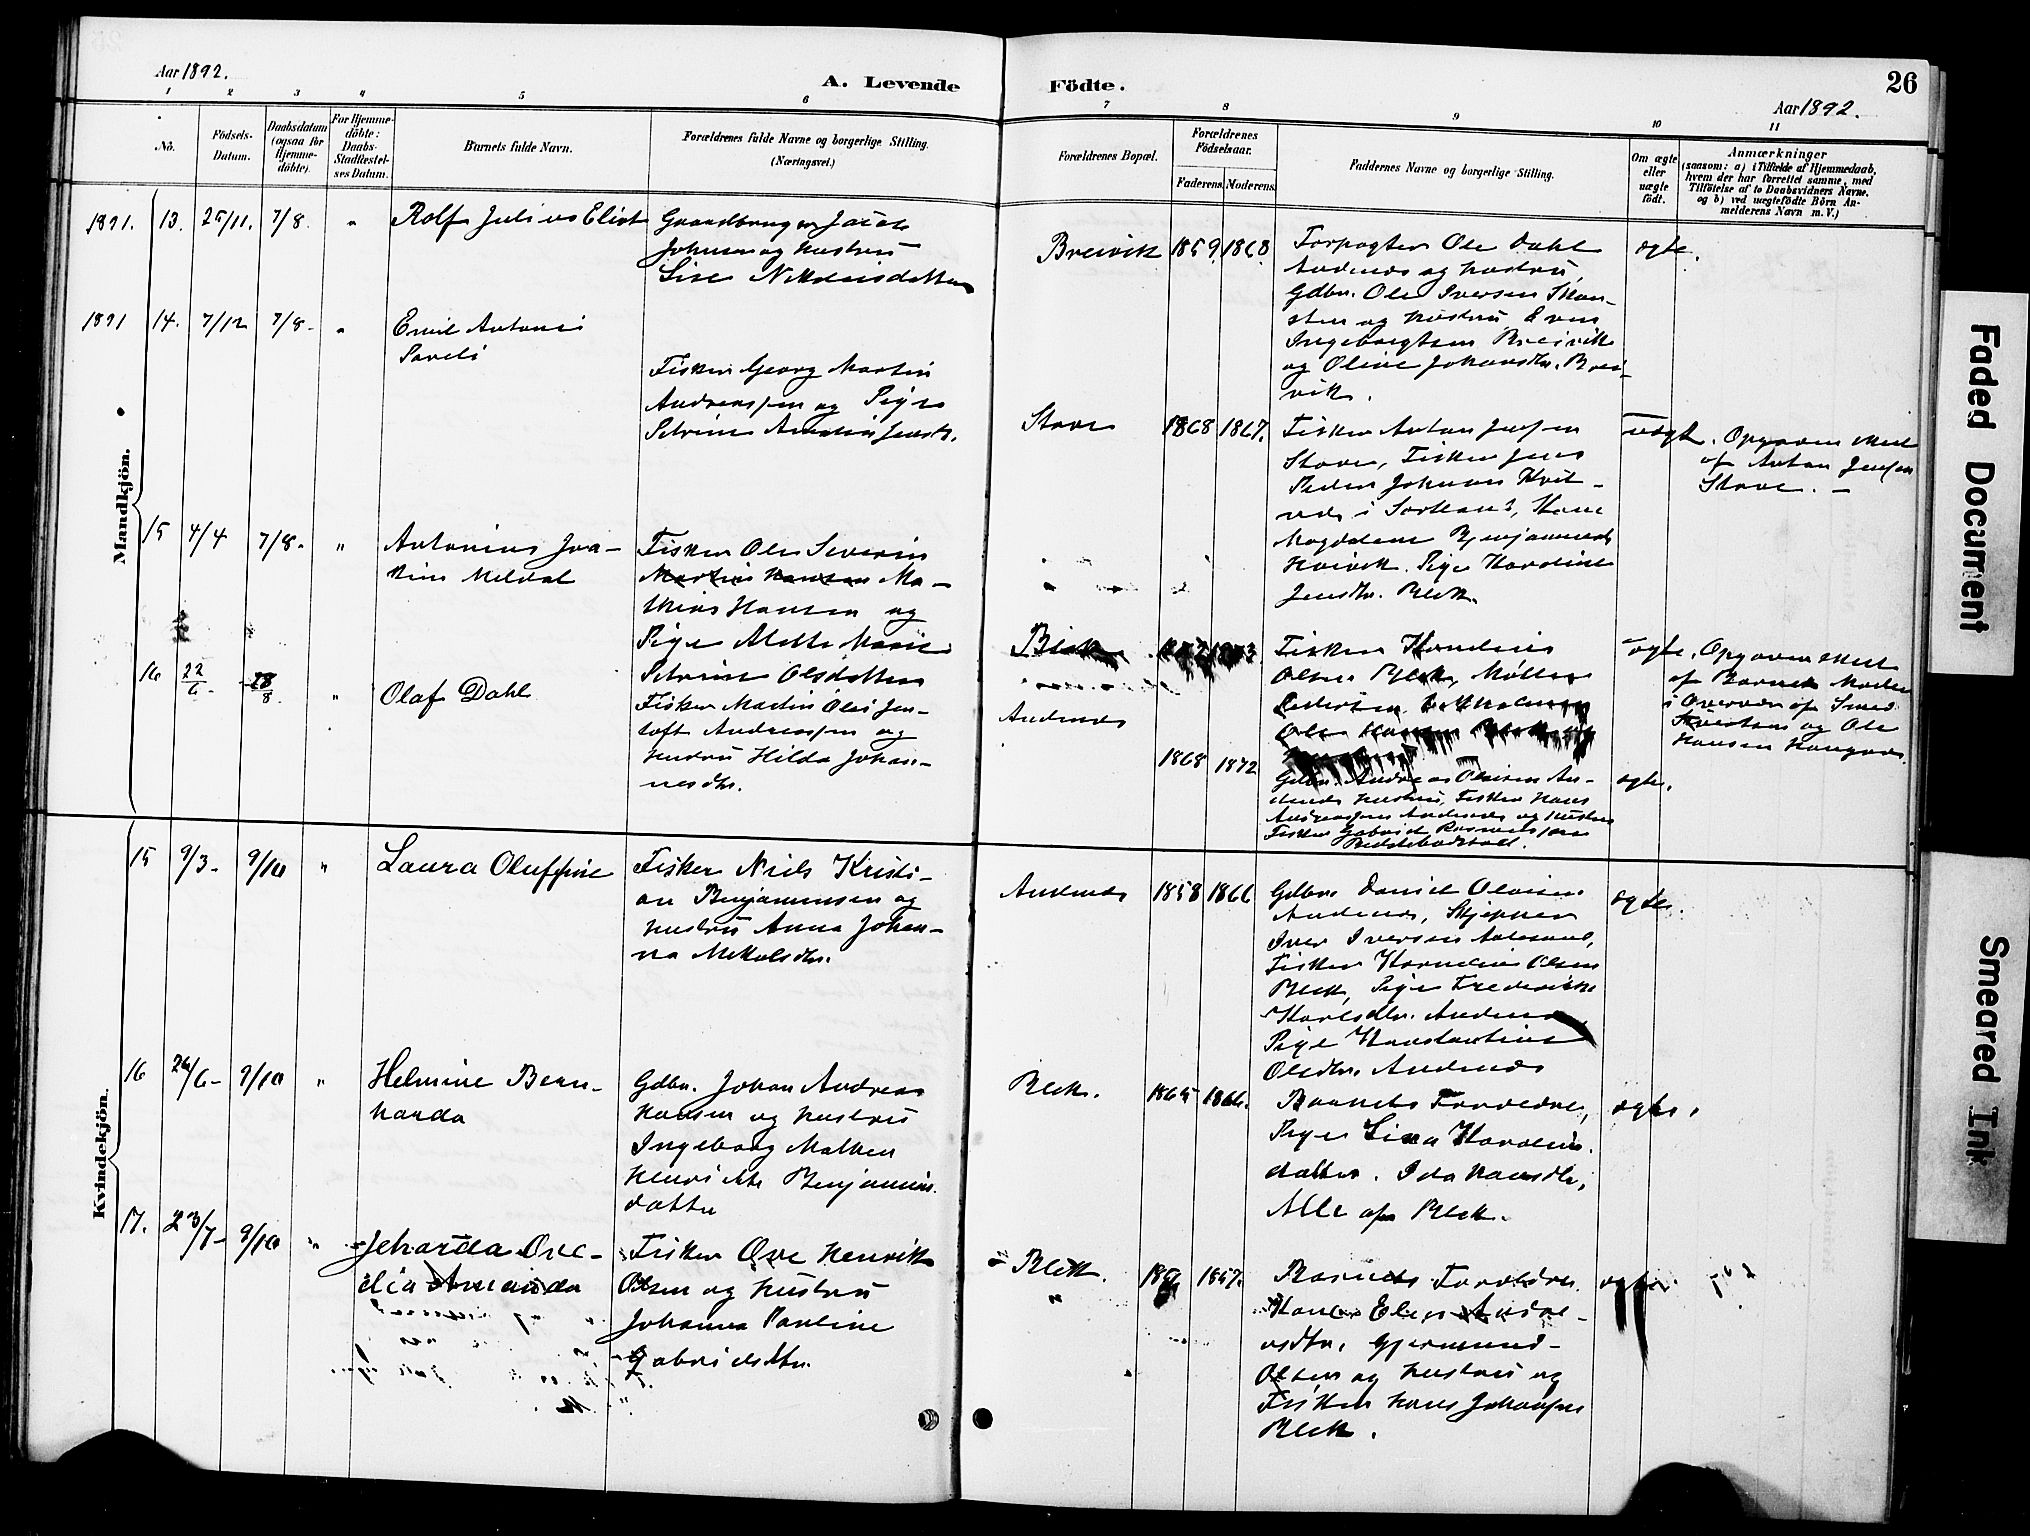 Aar 1892.
A. Levende
Födte.
26
Aar 1892.
1 2 3 4 5 6 7 8 9 10 11
No.
Födsels-
Datum.
Daabsdatum
(ogsaa for
Hjemme-
döbte).
For Hjemme-
döbte:
Daabs-
Stadfæstel-
ses Datum.
Barnets fulde Navn.
Forældrenes fulde Navne og borgerlige Stilling.
(Næringsvei.)
Forældrenes Bopæl.
Forældrenes
Födselsaar.
Faderens.
Moderens.
Faddernes Navne og borgerlige Stilling.
Om ægte
eller
uægte
født.
Anmærkninger
(saasom: a) i Tilfælde af Hjemmedaab,
hvem der har forrettet samme, med
Tilföielse af to Daabsvidners Navne.
og b) ved uægtefödte Börn An-
melderens Navn m. V.)
Mandkjön.
1891. 13. 25/11. 7/8. "
Rolf Julius Eliot
Gaardbruger Jacob
Johnsen og Hustru
Lise Nikolaisdatter
Breivik 1859. 1868.
Forpagter Ole Dahl
Andenes og Hustru,
Gdbr. Ole Iversen Skan-
sten og Hustru
Ingebrigtsen Breivik
og Oline Johansdtr. Brei-
vik.
ægte.
1891 14. 7/12 7/8. "
Emil Antoni
Fisker Georg Martin
Andreassen og Pige
Petrine Jensd.
Stave 1868 1867.
Fisker Anton Jensen
Stave, Fisker Jens
Peder Johnsen Kvit-
nes i Sortland, Kone
Magdalene Benjaminsd.
Pige Hardine
Jensdtr. Blek.
uægte. Opgaven skeet
af Anton Jensen
Stave. —
15 4/4 7/8. "
Antonius Joa-
kim Meldal
Fisker Ole Severin
Martin Hansen Ma-
thias Hansen og
Pige Alette Marie
Petrine Olsdatter
Blek
Fisker Kornelius
Olsen Blek, Møller
Pedersen
Ole Hansen
uægte. Opgaven skeet
af Barnets Moder
i Overvær af
og Ole
Hansen
16 22/6. 28/8. "
Olaf Dahl
Fisker Martin Olai Jen-
toft Andreassen og
Hustru Hilda Johan-
nesdtr.
Andenes 1868 1872
Gdbr. Andreas Olaisen An-
denes Hustru, Fisker Hans
Andreassen Andenes og Hustru
Fisker Gabriel Rasmussen
ægte.
Kvindekjön.
15 9/3. 9/10 "
Laura Oluffine
Fisker Niels Kristi-
an Benjaminsen og
Hustru Anna Johan-
na Nikolsdtr.
Andenes 1858 1866
Gdbr. Daniel Olaisen
Andenes, Skjepper
Iver Iversen Aalesund,
Fisker Kornelius Olsen
Blek, Pige Frederikke
Karlsdtr. Andenes
Pige Konstantine
Olsdtr. Andenes
ægte.
16 26/6. 9/10 "
Helmine Bern-
harda
Gdbr. Johan Andreas
Hansen og Hustru
Ingeborg Mathea
Henriette Benjamins-
datter
Blek. 1865 1866.
Barnets Forældre,
Pige Lina Kornelius-
datter. Ida Hansdtr,
Alle af Blek.
ægte.
17. 23/7. 9/10 "
Jeharda Ove-
dia Amanda
Fisker Ove Henrik
Olsen og Hustru
Johanna Pauline
Gabrielsdtr.
Blek. 1857.
Barnets Forældre.
Kone Elen Andre-
asdtr. Gjermund
Olsen og Hustru og
Fisker Hans Johansen
Blek.
ægte.
Faded Document
Smeared Ink